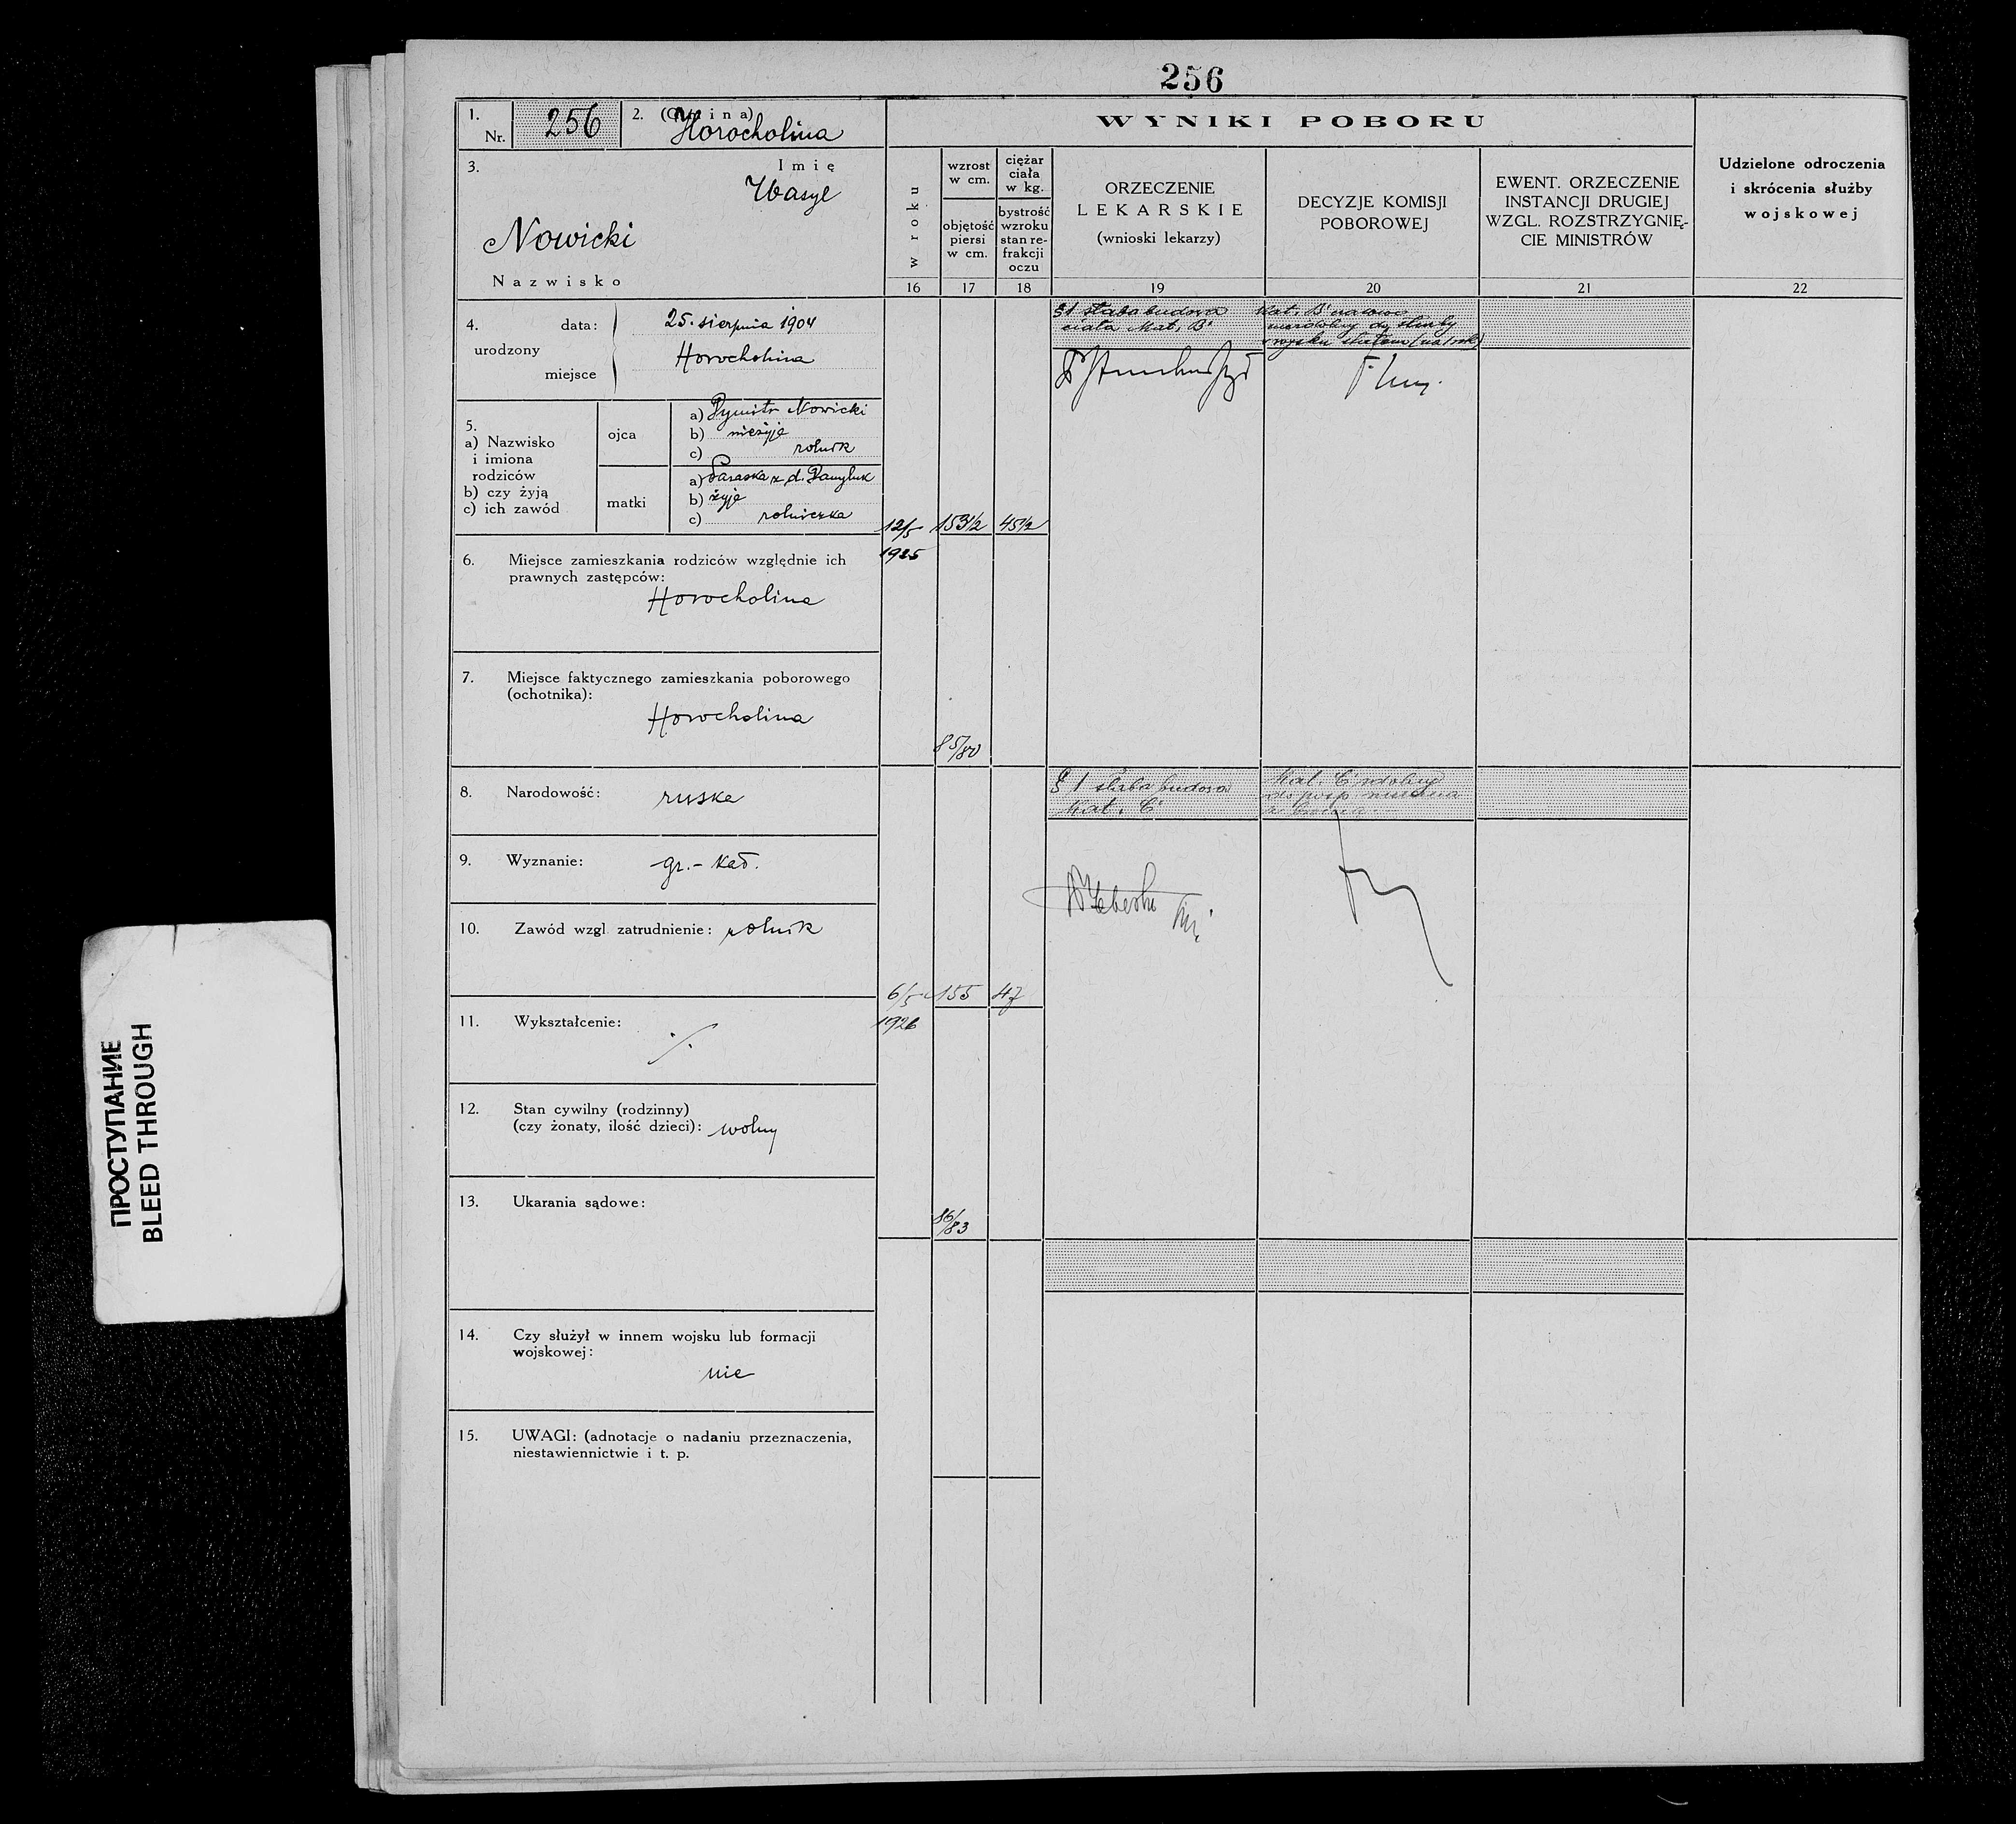 256
1.
Nr. 256
2. (Gmina)
Horocholina
3.
Imię
Wasyl
Nowicki
Nazwisko
4. urodzony
data: 25. sierpnia 1904
miejsce Horocholina
5.
a) Nazwisko
i imiona
rodziców
b) czy żyją
c) ich zawód
ojca
a) Dymitr Nowicki
b) nieżyje
c) rolnik
matki
a) Paraska z d. Danyluk
b) żyje
c) rolniczka
6. Miejsce zamieszkania rodziców względnie ich
prawnych zastępców:
Horocholina
7. Miejsce faktycznego zamieszkania poborowego
(ochotnika):
Horocholina
8. Narodowość: ruska
9. Wyznanie: gr.-kat.
10. Zawód wzgl. zatrudnienie: rolnik
11. Wykształcenie:
./.
12. Stan cywilny (rodzinny)
(czy żonaty, ilość dzieci): wolny
13. Ukarania sądowe:
14. Czy służył w innem wojsku lub formacji
wojskowej:
nie
15. UWAGI: (adnotacje o nadaniu przeznaczenia,
niestawiennictwie i t. p.
WYNIKI POBORU
w roku
16
wzrost
w cm.
objętość
piersi
w cm.
17
ciężar
ciała
w kg.
bystrość
wzroku
stan re-
frakcji
oczu
18
ORZECZENIE
LEKARSKIE
(wnioski lekarzy)
19
DECYZJE KOMISJI
POBOROWEJ
20
EWENT. ORZECZENIE
INSTANCJI DRUGIEJ
WZGL. ROZSTRZYGNIĘ-
CIE MINISTRÓW
21
Udzielone odroczenia
i skrócenia służby
wojskowej
22
12/5
1925
153 1/2
45 1/2
85/80
§1 słaba budowa
ciała Kat. B
Kat. B czasowo
niezdolny do służby
w wojsku stałem (na 1 rok)
6/5
1926
155
47
86/83
§ 1 słaba budowa
Kat. C
Kat. C zdolny
do posp. ruszenia
z bronią.
ПРОСТУПАНИЕ
BLEED THROUGH